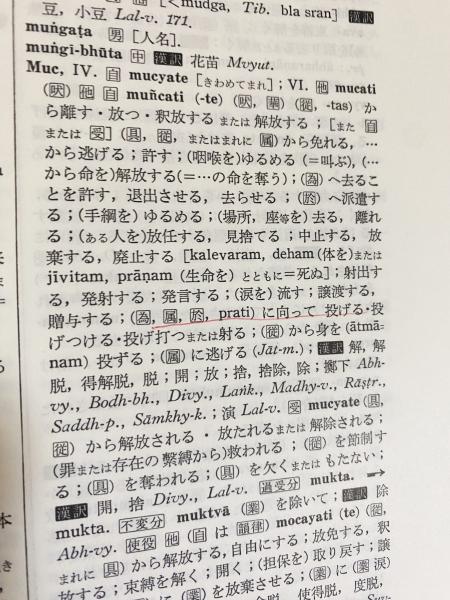 [<mudga, Tib. bla sran] 漢訳
豆, 小豆 Lal-v. 171.
muṅgaṭa 男 [人名].
muṅgi-bhūta 中 漢訳 花苗 Mvyut.
Muc, IV. 自 mucyate [きわめてまれ]; VI. 他 mucati
(吠) 他 自 muñcati (-te) (吠, 単) (従, -tas) か
ら離す・放つ・釈放する または 解放する; [また 自
または 受] (具, 従, またはまれに 属) から免れる, …
から逃げる; 許す; (咽喉を)ゆるめる (=叫ぶ), (…
から命を)解放する(=…の命を奪う); (為) へ去るこ
とを許す, 退出させる, 去らせる; (於) へ派遣す
る; (手綱を) ゆるめる; (場所, 座等を) 去る, 離れ
る; (ある人を)放任する, 見捨てる; 中止する, 放
棄する, 廃止する [kalevaram, deham (体を)または
jīvitam, prāṇam (生命を) とともに=死ぬ]; 射出す
る, 発射する; 発言する; (涙を) 流す; 譲渡する,
贈与する; (為, 属, 於, prati) に向って 投げる・投
げつける・投げ打つまたは射る; (従) から身を (ātmā-
nam) 投ずる; (属) に逃げる (Jāt-m.); 漢訳 解, 解
脱, 得解脱, 脱; 開; 放; 捨, 捨除, 除; 擲下 Abh-
vy., Bodh-bh., Divy., Laṅk., Madhy-v., Rāṣṭr.,
Saddh-p., Sāmkhy-k.; 演 Lal-v. 受 mucyate (具,
従) から解放される・放たれるまたは 解除される;
(罪または存在の 繋縛から)救われる; (従) を節制す
る; (具) を奪われる; (具) を欠くまたは もたない;
漢訳 開, 捨 Divy., Lal-v. 過受分 mukta. →
mukta. 不変分 muktvā (業) を除いて; 漢訳 除
Abh-vy. 使役 他 (自 は 韻律) mocayati (te) (従,
まれに 具) から解放する, 自由にする; 放免する, 釈
放する; 束縛を解く; 開く; (担保を) 取り戻す; 譲